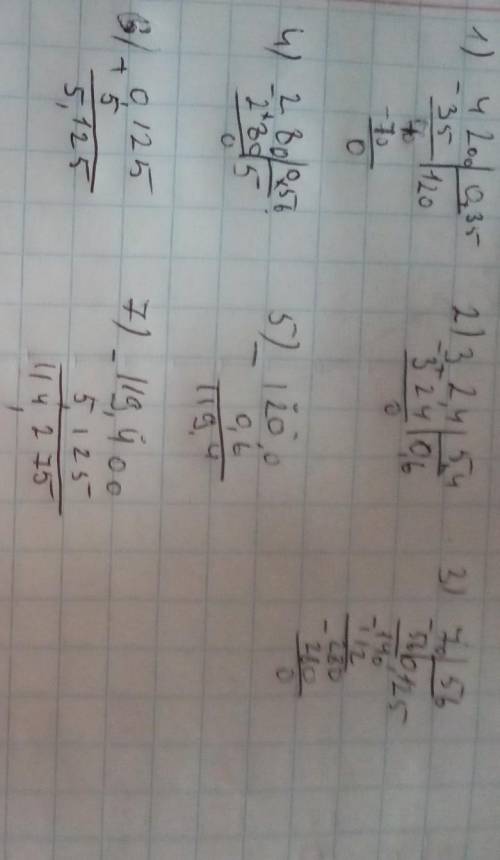 1) 4200|0,35
-35 |120
70
-70
0
2) 32,4|5,4
-324|0,6
0
3) 70|56
-56|0,125
-140
112
-280
280
0
4) 280|0,56
-280|5
0
5) - 120,0
0,6
119,4
6) + 0,125
5
5,125
7) - 119,400
5,125
114,275